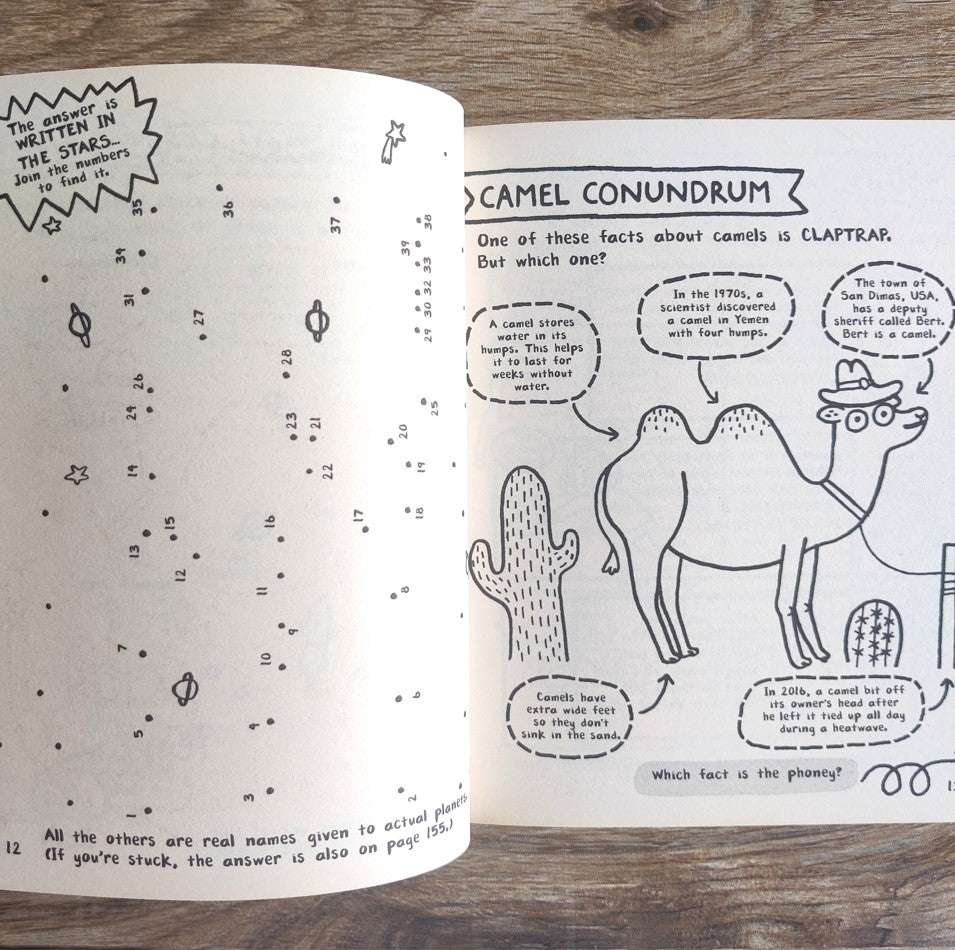 The answer is
WRITTEN IN
THE STARS...
Join the numbers
to find it.
35
36
37
38
39
34
33
32
31
30
29
27
28
26
24
25
23
21
20
22
19
14
18
17
16
15
13
12
11
8
9
7
10
6
5
4
3
2
1
All the others are real names given to actual planets.
(If you're stuck, the answer is also on page 155.)
12
CAMEL CONUNDRUM
One of these facts about camels is CLAPTRAP.
But which one?
A camel stores
water in its
humps. This helps
it to last for
weeks without
water.
In the 1970s, a
scientist discovered
a camel in Yemen
with four humps.
The town of
San Dimas, USA,
has a deputy
sheriff called Bert.
Bert is a camel.
Camels have
extra wide feet
so they don't
sink in the sand.
In 2016, a camel bit off
its owner's head after
he left it tied up all day
during a heatwave.
Which fact is the phoney?